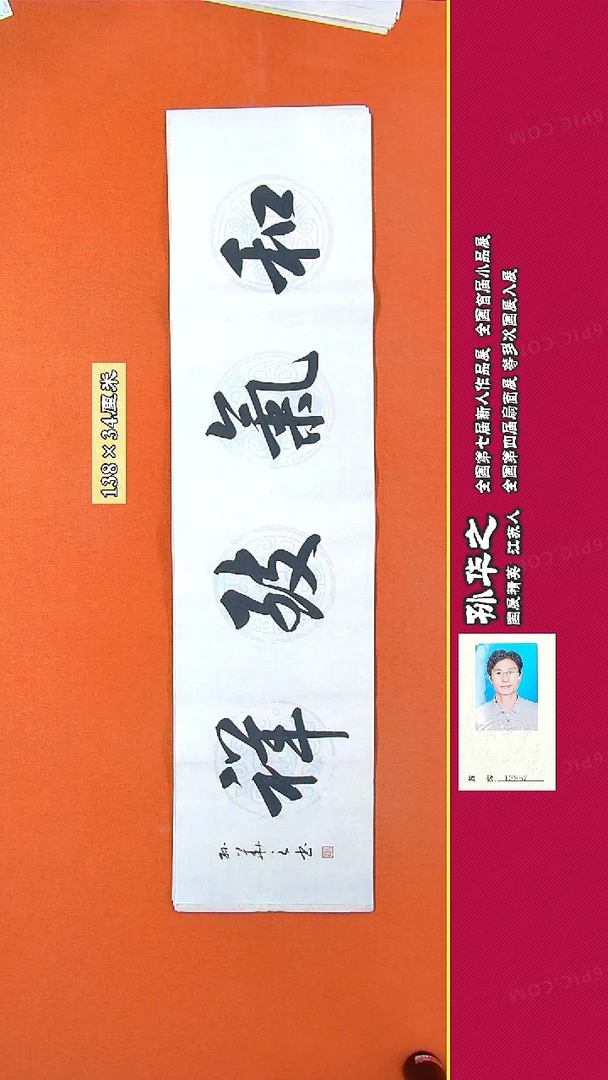 138×34厘米
和氣致祥
孙華之书
孙华之
国展精英 江苏人
全国第七届新人作品展 全国首届小品展
全国第四届扇面展 等多次国展入展
6PIC.COM